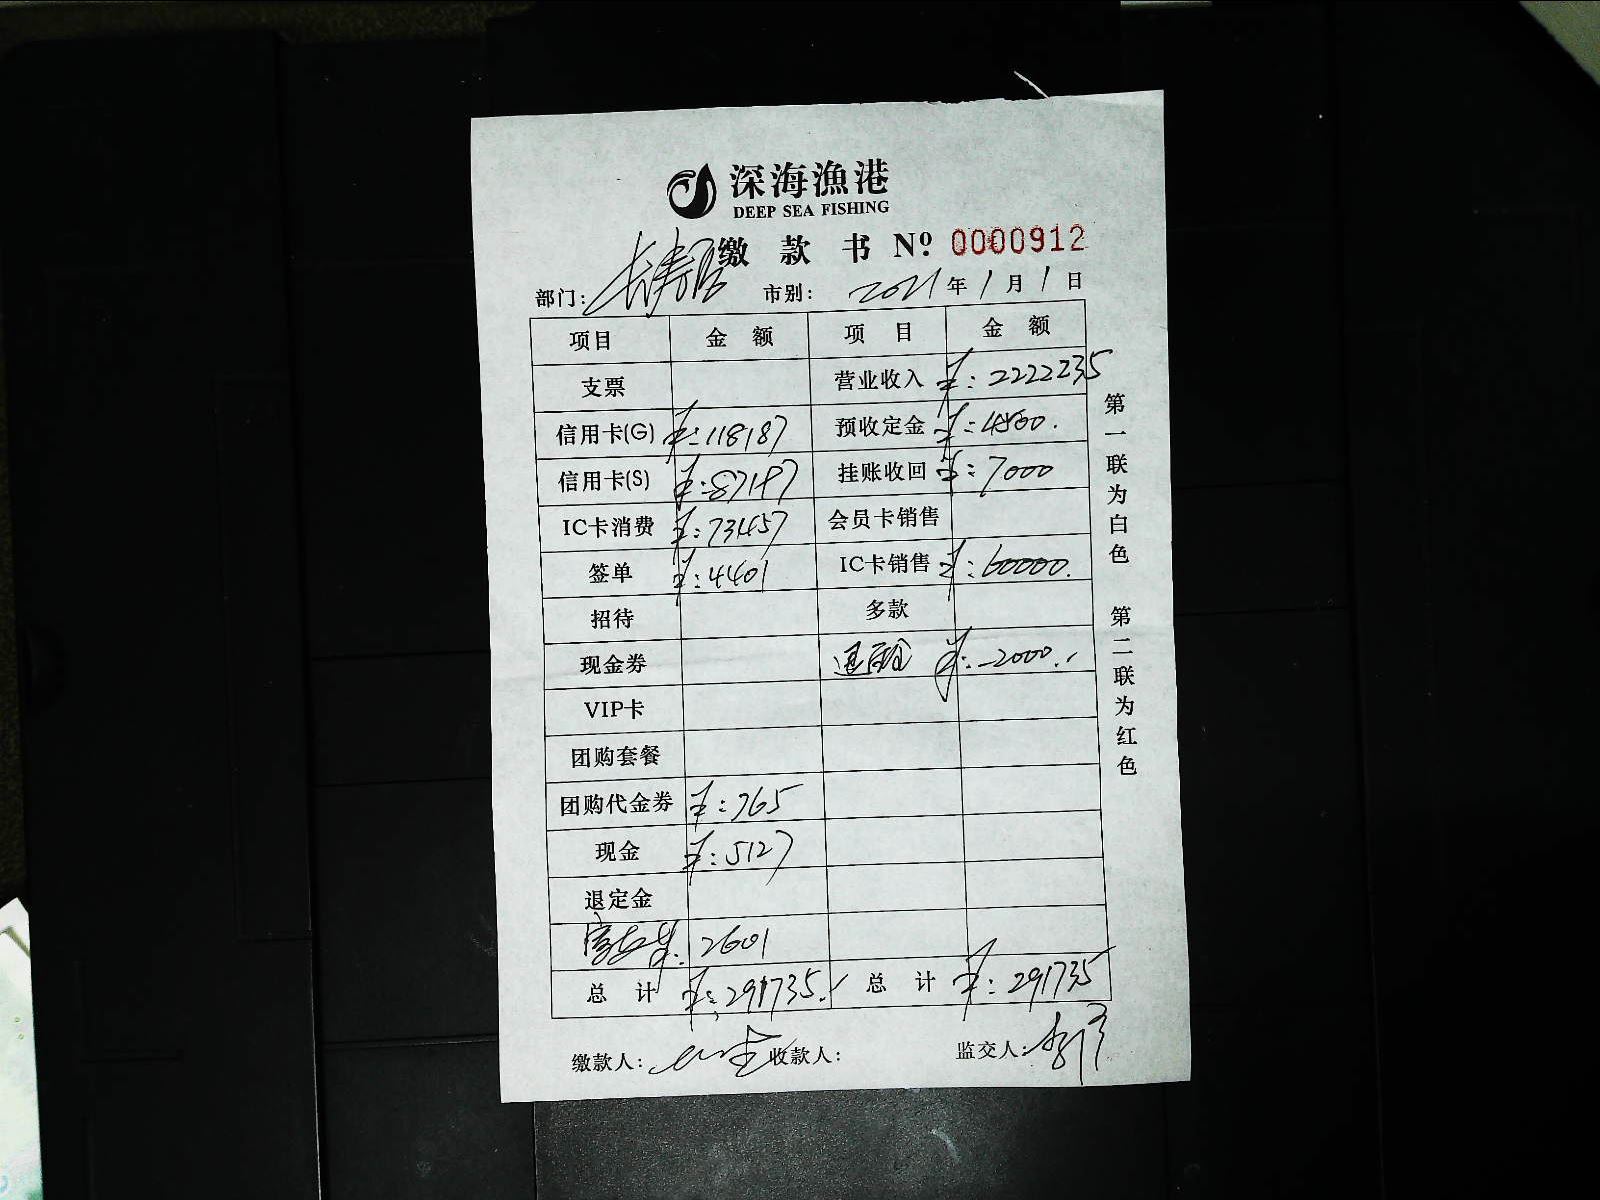 深海渔港
DEEP SEA FISHING
缴款书 Nº 0000912
部门: 市别: 2021年1月1日
项目 金额 项目 金额
支票 营业收入 ¥:222235
信用卡(G) ¥:118187 预收定金 ¥:4500.
信用卡(S) ¥:87197 挂账收回 ¥:7000
IC卡消费 ¥:73457 会员卡销售
签单 ¥:4401 IC卡销售 ¥:60000.
招待 多款
现金券 ¥:-2000.
VIP卡
团购套餐
团购代金券 ¥:765
现金 ¥:5127
退定金
2601
总计 ¥:291735. 总计 ¥:291735
缴款人: 收款人: 监交人:
第一联为白色 第二联为红色